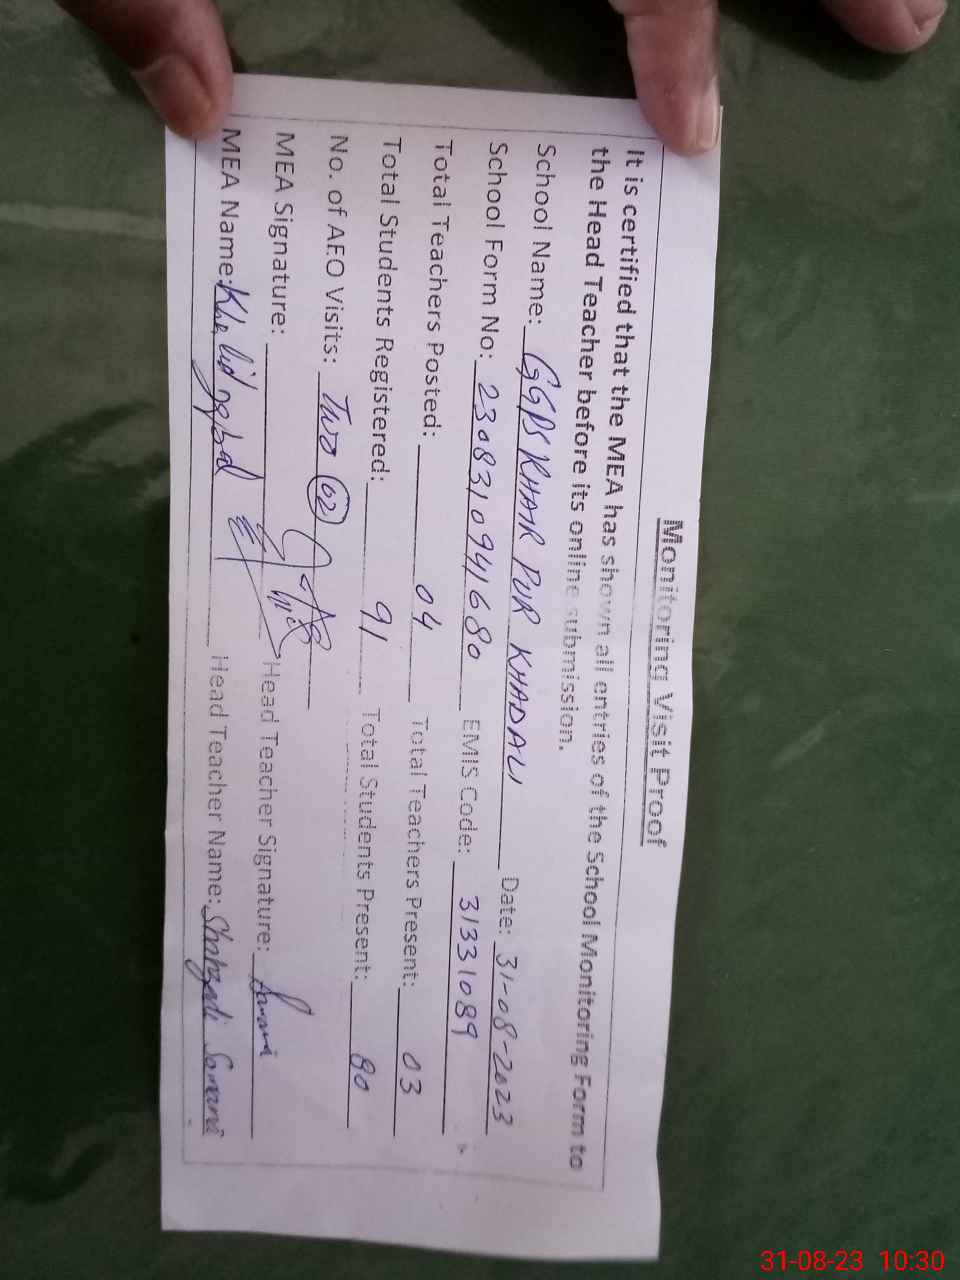 Monitoring Visit Proof
It is certified that the MEA has shown all entries of the School Monitoring Form to
the Head Teacher before its online submission.
School Name: GGPS KHAIR PUR KHADALI Date: 31-08-2023
School Form No: 2308310941680 EMIS Code: 31331089
Total Teachers Posted: 04 Total Teachers Present: 03
Total Students Registered: 91 Total Students Present: 80
No. of AEO Visits: Two 02
MEA Signature: Head Teacher Signature:
MEA Name: Khalid Iqbal Head Teacher Name: Shahzadi
31-08-23 10:30